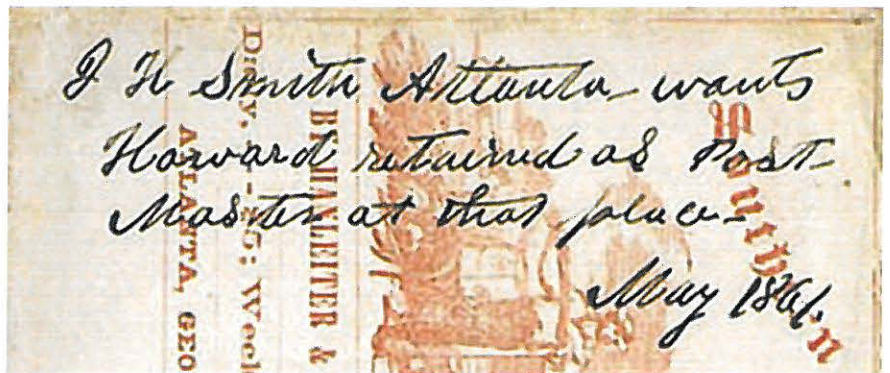 J H Smith Atlanta wants
Howard retained as Post
Master at that place
May 1861.
BY HANLEITER &
ATLANTA, GEO